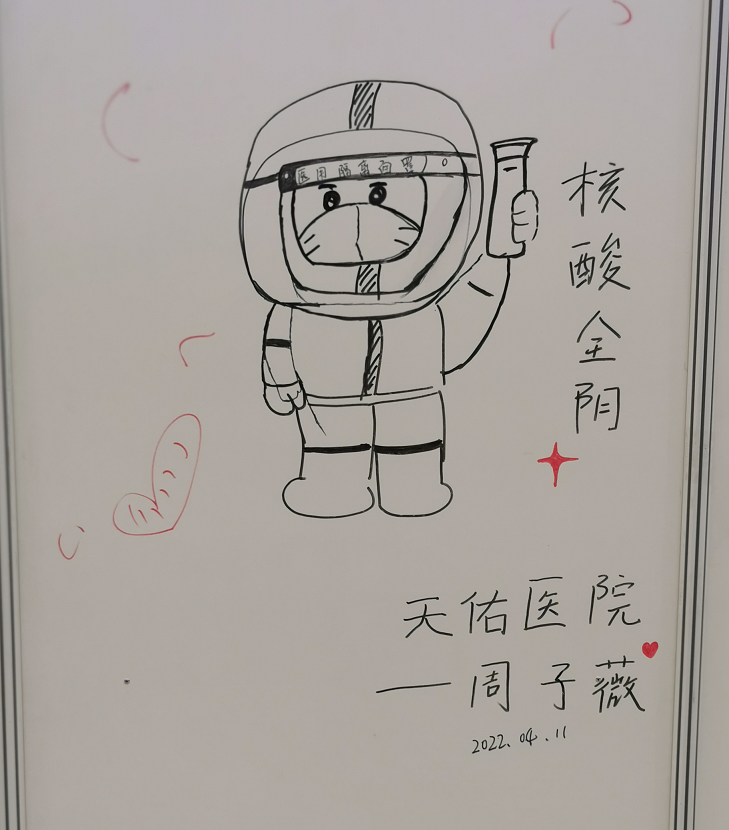 医用隔离面罩
核酸全阴
天佑医院
—周子薇
2022.04.11